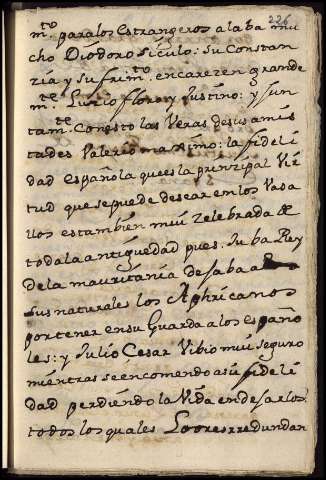 226
m.to para los Estrangeros a la ba mu
cho Diodoro siculo: su Constan
zia y su frim.to encarezen grande
m.te Luzio floro y Justino: y Jun
tam.te Con esto las Veras desus amis
tades Valerio maximo: la fideli
dad española que es la prinzipal Vir
tud que se puede desear en los Vasa
llos es tambien mui zelebrada de
toda la antiguedad pues Juba Rey
de la mauritania desaba a
sus naturales los Aphricanos
por tener en su Guarda a los españo
les: y Julio Cesar Vibio mui seguro
mientras se encomendo a su fideli
dad perdiendo la Vida en dejalos:
todos los quales Loores redundan